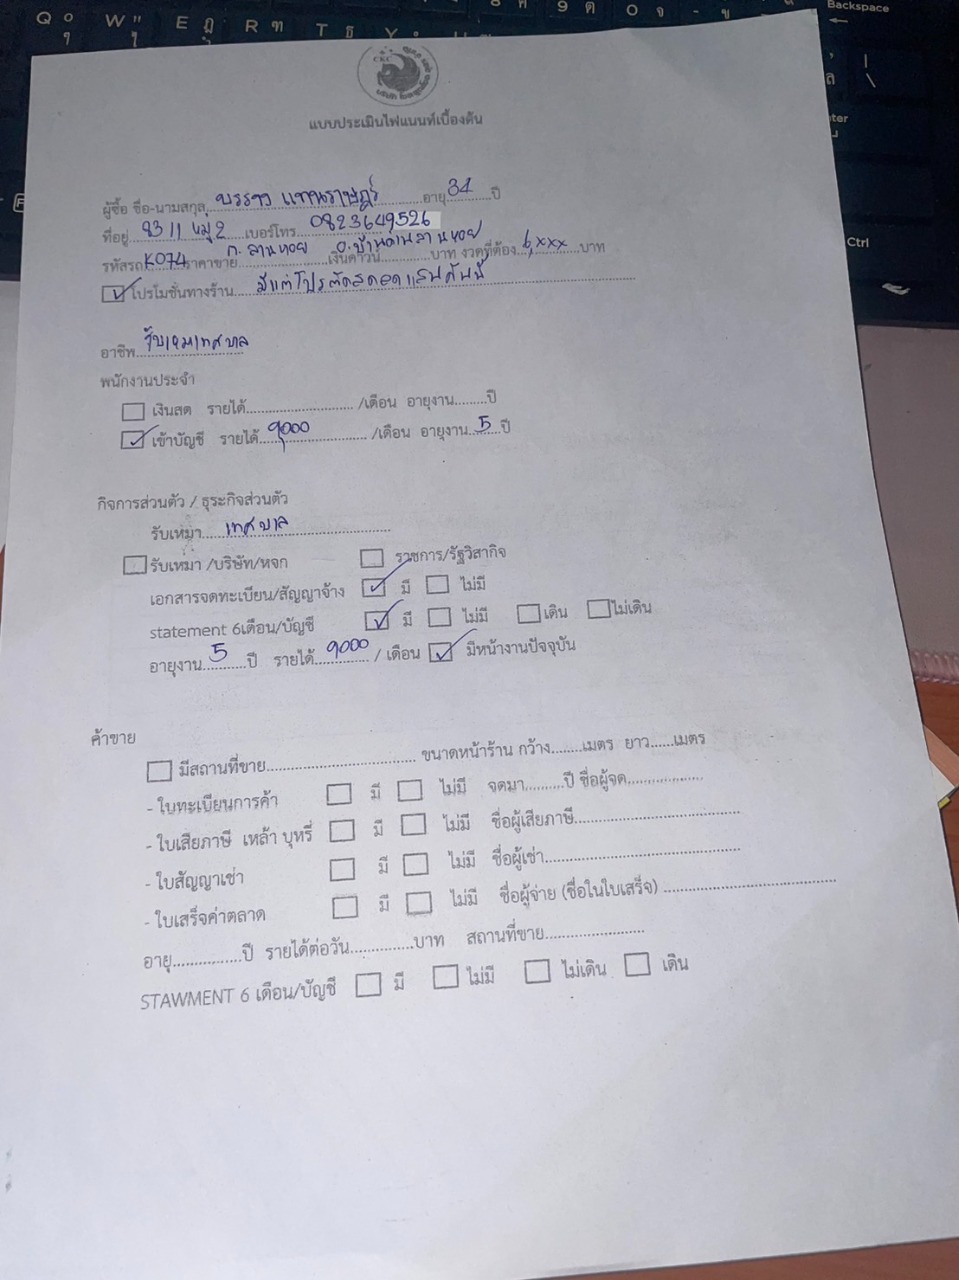 Q ๐ W " E ฎ R ฑ T ธ 9 ต 0 จ - ข Backspace
CKC
แบบประเมินไฟแนนท์เบื้องต้น
ผู้ซื้อ ชื่อ-นามสกุล อายุ 34 ปี
ที่อยู่ 93 11 หมู่ 2 เบอร์โทร 0823649526
ต. ลานหอย อ. บ้านด่านลานหอย
รหัสรถ K074 ราคาขาย เงินดาวน์ บาท งวดที่ต้อง 6,xxx บาท
โปรโมชั่นทางร้าน
อาชีพ
พนักงานประจำ
เงินสด รายได้ /เดือน อายุงาน ปี
เข้าบัญชี รายได้ 9000 /เดือน อายุงาน 5 ปี
กิจการส่วนตัว / ธุระกิจส่วนตัว
รับเหมา เทศบาล
รับเหมา /บริษัท/หจก ราชการ/รัฐวิสากิจ
เอกสารจดทะเบียน/สัญญาจ้าง มี ไม่มี
statement 6เดือน/บัญชี มี ไม่มี เดิน ไม่เดิน
อายุงาน 5 ปี รายได้ 9000 / เดือน มีหน้างานปัจจุบัน
ค้าขาย
มีสถานที่ขาย ขนาดหน้าร้าน กว้าง เมตร ยาว เมตร
- ใบทะเบียนการค้า มี ไม่มี จดมา ปี ชื่อผู้จด
- ใบเสียภาษี เหล้า บุหรี่ มี ไม่มี ชื่อผู้เสียภาษี
- ใบสัญญาเช่า มี ไม่มี ชื่อผู้เช่า
- ใบเสร็จค่าตลาด มี ไม่มี ชื่อผู้จ่าย (ชื่อในใบเสร็จ)
อายุ ปี รายได้ต่อวัน บาท สถานที่ขาย
STAWMENT 6 เดือน/บัญชี มี ไม่มี ไม่เดิน เดิน
Ctrl